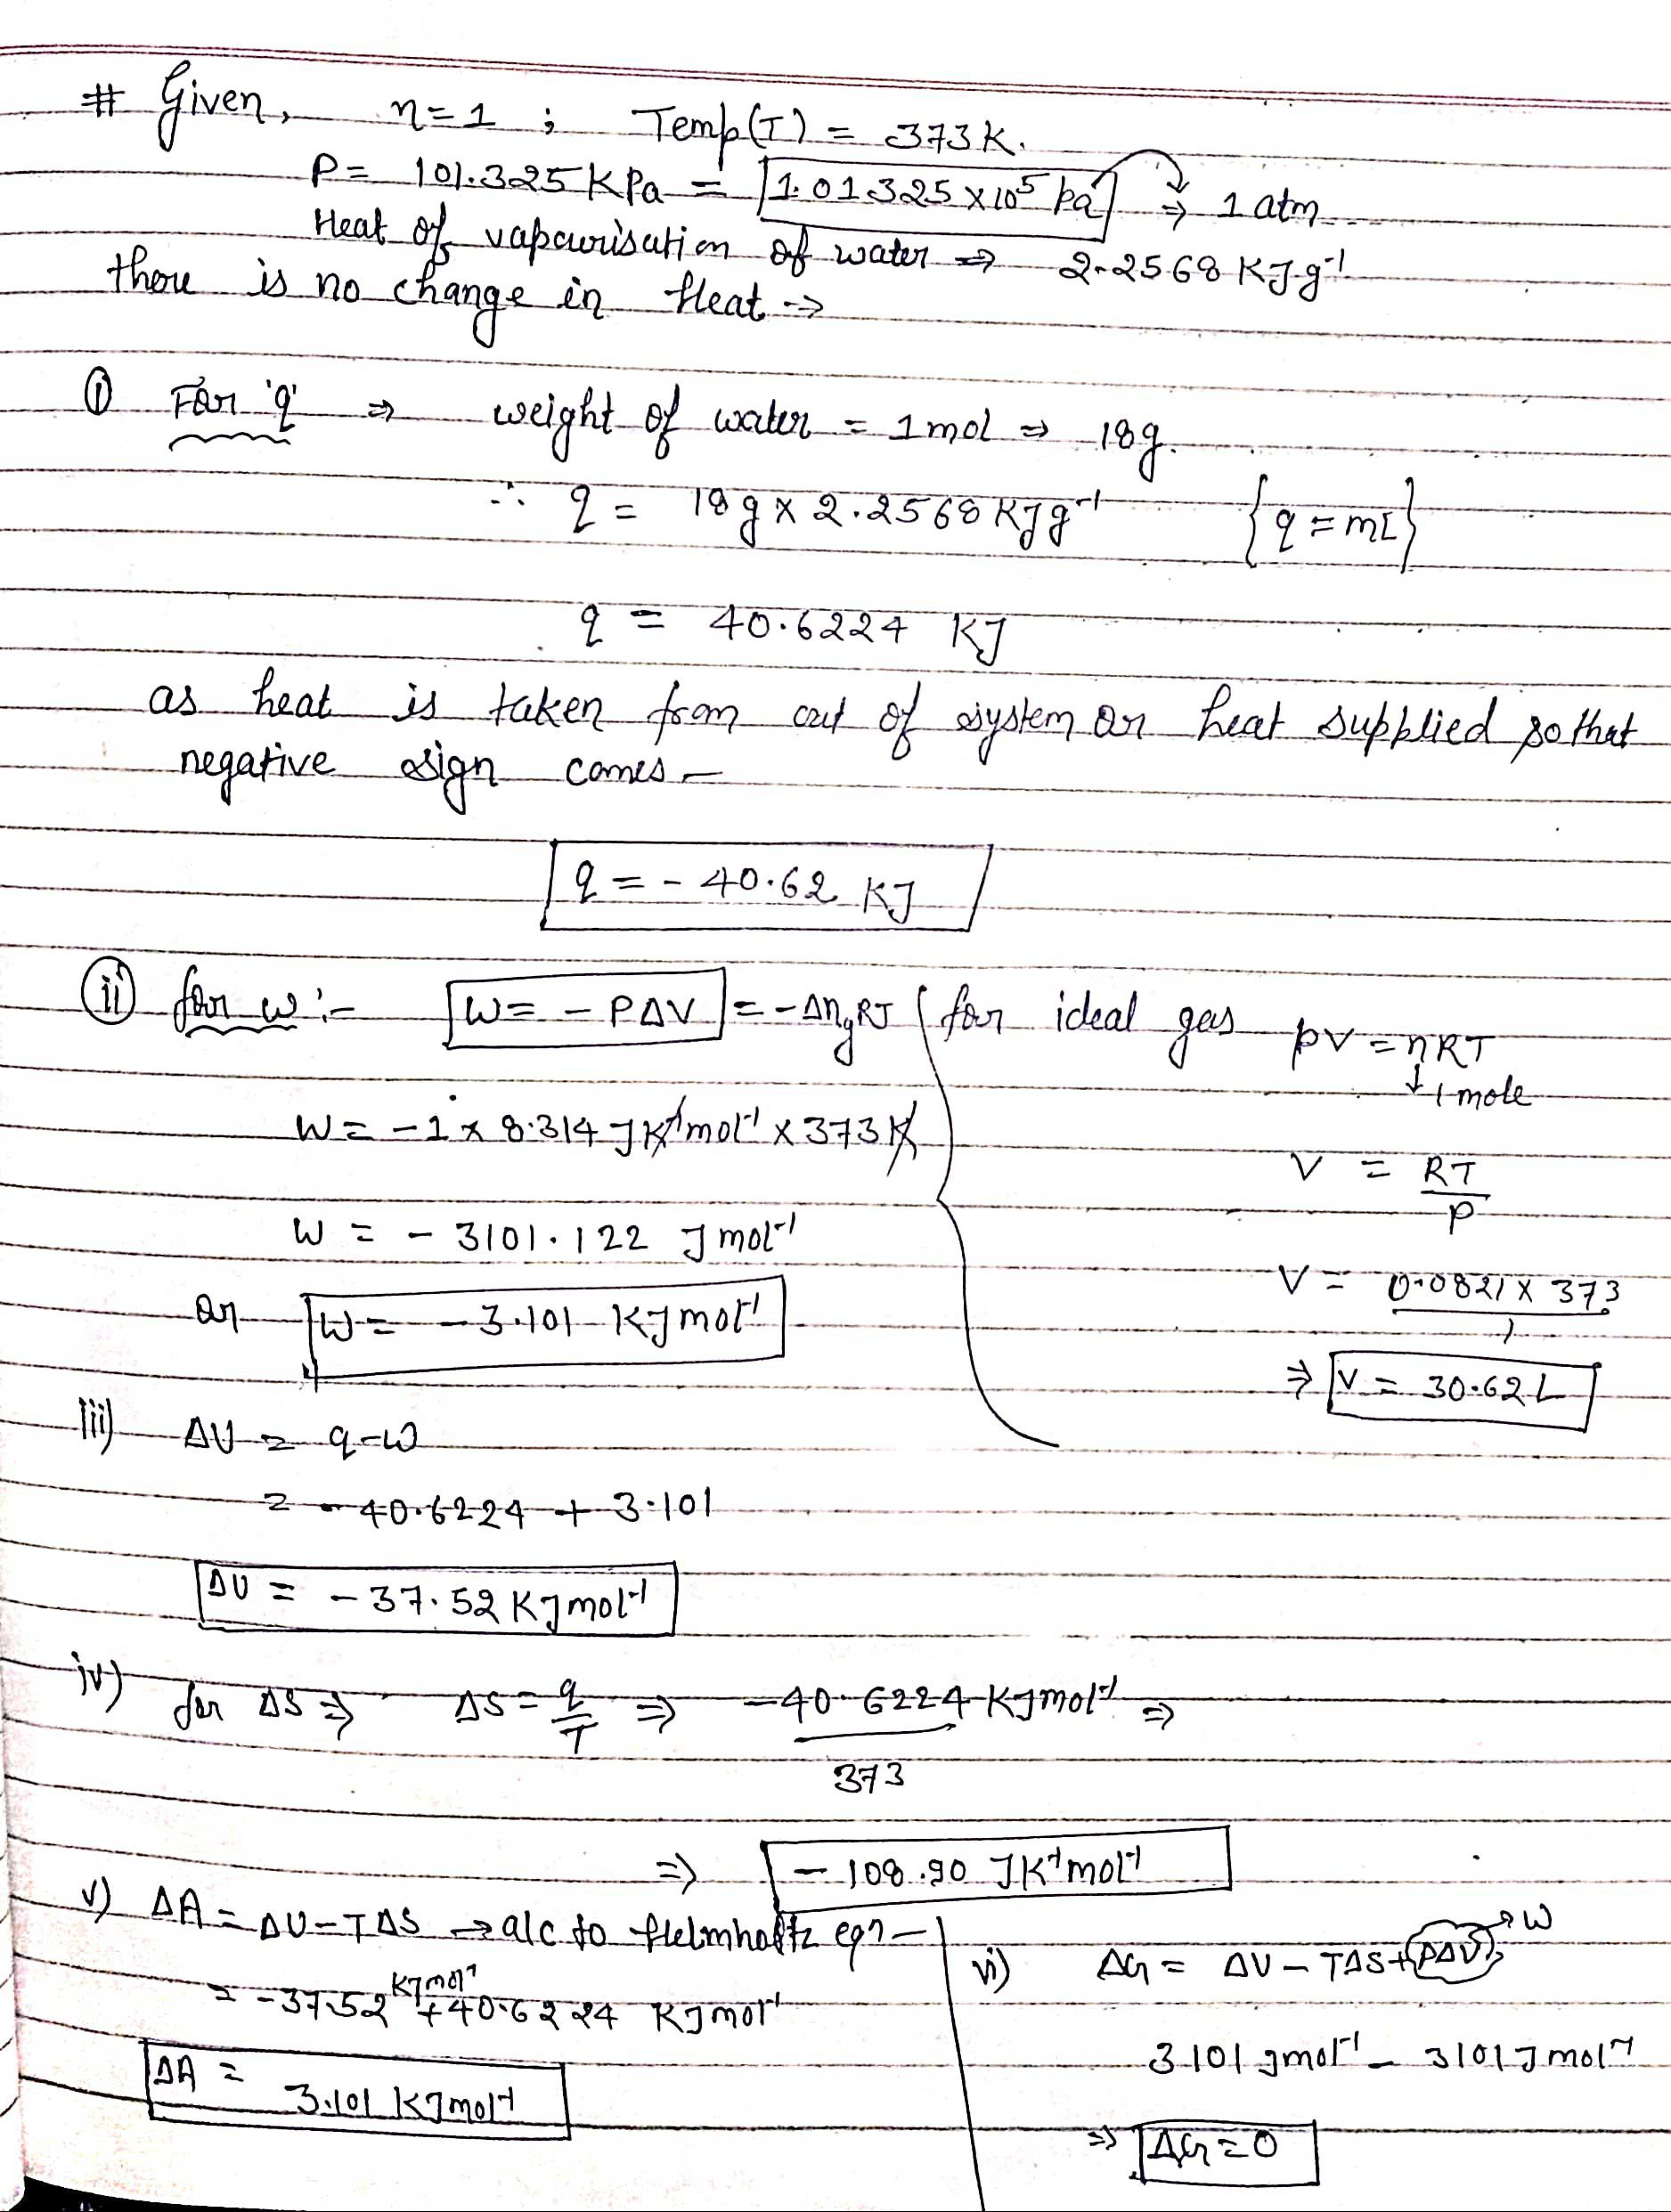 # Given, n=1 ; Temp(T) = 373K.
P= 101.325 KPa = 1.01325 x 10⁵ Pa ⇒ 1 atm
Heat of vapourisation of water ⇒ 2.2568 KJg⁻¹
there is no change in Heat →
① For 'q' ⇒ weight of water = 1 mol ⇒ 18g.
∴ q = 18g x 2.2568 KJg⁻¹ {q = mL}
q = 40.6224 KJ
as heat is taken from out of system or heat supplied so that
negative sign comes –
q = - 40.62 KJ
ⓘⓘ for w :- W = - PΔV = - Δn_gRT for ideal gas pv = nRT
↓ 1 mole
W = - 1 x 8.314 JK⁻¹mol⁻¹ x 373K
V = RT/P
W = - 3101.122 J mol⁻¹
V = 0.0821 x 373/1
or W = - 3.101 KJ mol⁻¹
⇒ V = 30.62 L
iii) ΔU = q-w
= - 40.6224 + 3.101
ΔU = - 37.52 KJmol⁻¹
iv) for ΔS ⇒ ΔS = q/T ⇒ -40.6224 KJmol⁻¹/373 ⇒
⇒ - 108.90 JK⁻¹mol⁻¹
v) ΔA = ΔU - TΔS → a/c to Helmholtz eqn –
= -37.52 KJmol⁻¹ + 40.6224 KJmol⁻¹
ΔA = 3.101 KJmol⁻¹
vi) ΔG = ΔU - TΔS + (PΔV) → W
3101 Jmol⁻¹ - 3101 J mol⁻¹
⇒ ΔG = 0